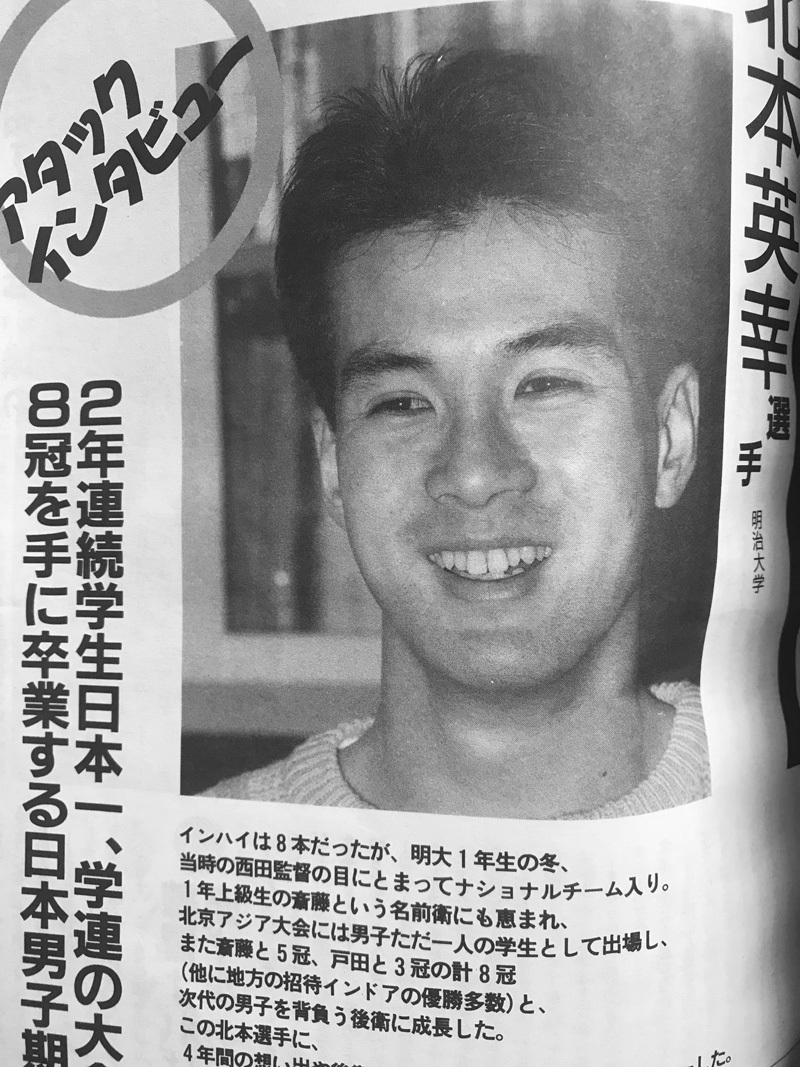 アタック
インタビュー
北本英幸選手
明治大学
2年連続学生日本一、学連の大
8冠を手に卒業する日本男子期
インハイは8本だったが、明大1年生の冬、
当時の西田監督の目にとまってナショナルチーム入り。
1年上級生の斎藤という名前衛にも恵まれ、
北京アジア大会には男子ただ一人の学生として出場し、
また斎藤と5冠、戸田と3冠の計8冠
(他に地方の招待インドアの優勝多数)と、
次代の男子を背負う後衛に成長した。
この北本選手に、
4年間の想い出や後
した。